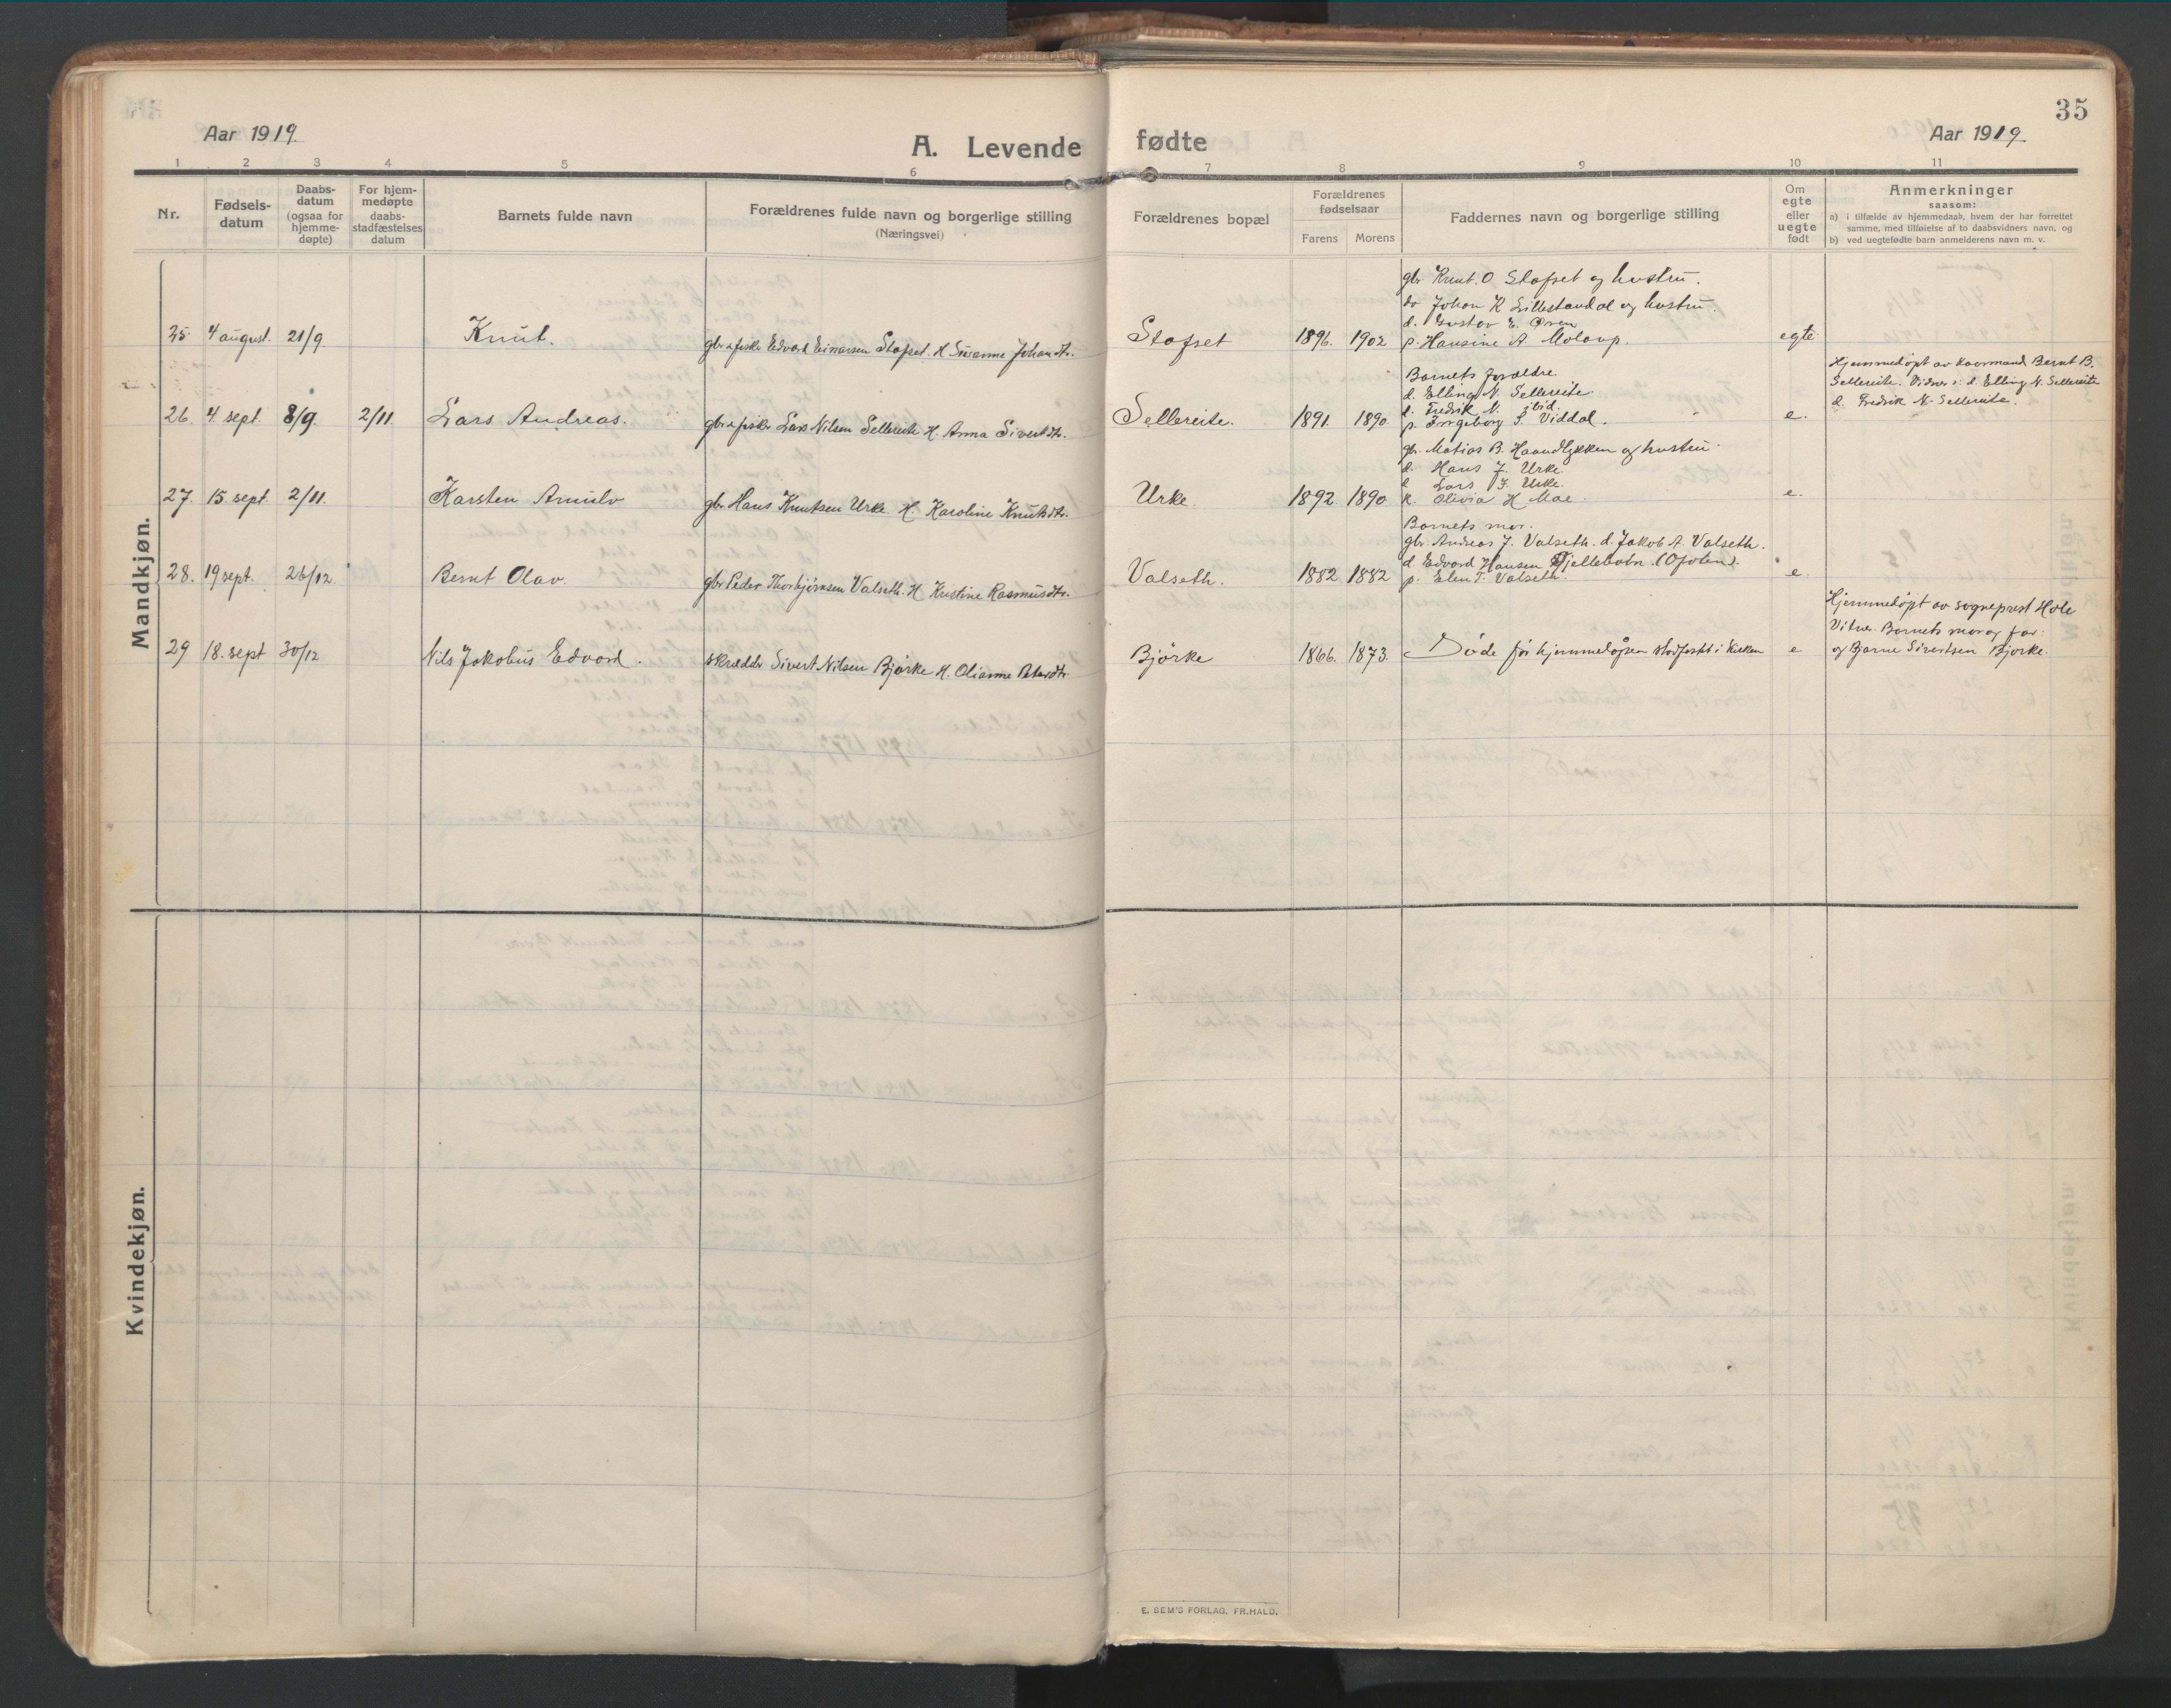 35
Aar 1919.
A. Levende fødte
Aar 1919
1 2 3 4 5 6 7 8 9 10 11
Nr.
Fødsels-
datum
Daabs-
datum
(ogsaa for
hjemme-
døpte)
For hjem-
medøpte
daabs-
stadfæstelses
datum
Barnets fulde navn
Forældrenes fulde navn og borgerlige stilling
(Næringsvei)
Forældrenes bopæl
Forældrenes
fødselsaar
Farens Morens
Faddernes navn og borgerlige stilling
Om
egte
eller
uegte
født
Anmerkninger
saasom:
a) i tilfælde av hjemmedaab, hvem der har forrettet
samme, med tilføielse af to daabsvidners navn, og
b) ved uegtefødte barn anmelderens navn m. v.
Mandkjøn.
25 4 august. 21/9. Knut. gbr & fisker Edvard Einarsen Stafset. H. Susanne Johansdtr. Stafset 1896. 1902
gbr Knut. O Stafset og hustru.
do Johan K Lillestavdal og hustru.
d. Gustav E.
p. Hansine A Molaup.
egte
26. 4. sept. 8/9. 2/11. Lars Andreas. gbr & fisker Lars Nilsen Sellereite H. Anna Sivertdtr. Sellereite. 1891. 1890
Barnets forældre
d. Elling N. Sellereite
d. Fredrik N. ibid.
p. Ingeborg S. Viddal.
e.
Hjemmedøpt av Bernt B.
Sellereite. Vidner: d. Elling N. Sellereite
d. Fredrik N. Sellereite.
27. 15 sept. 2/11. Karsten Arnulv gbr Hans Knutsen Urke H. Karoline Knutsdtr. Urke. 1892. 1890
gbr. Matias B. Haandlykken og hustru.
d. Hans J. Urke.
d Lars J. Urke.
p. Olivia H Moe.
e.
28. 19 sept. 26/12. Bernt Olav. gbr Peder Thorbjørnsen Valseth. H Kristine Rasmusdtr. Valseth. 1882 1882
Barnets mor.
gbr. Andreas J. Valseth. d. Jakob A. Valseth.
d Edvard Hansen (Ofoten).
p. Elen T. Valseth.
e.
29 18. sept 30/12 Nils Jakobus Edvard. skrædder Sivert Nilsen Bjørke H. Olianne Petersdtr. Bjørke 1866. 1873.
Døde før hjemmedåpen stadfestet i kirken
e
Hjemmedøpt av sogneprest Hole
Vitner. Barnets mor og far
og Bjarne Sivertsen Bjørke.
Kvindekjøn.
E. SEM'S FORLAG, FR.HALD.